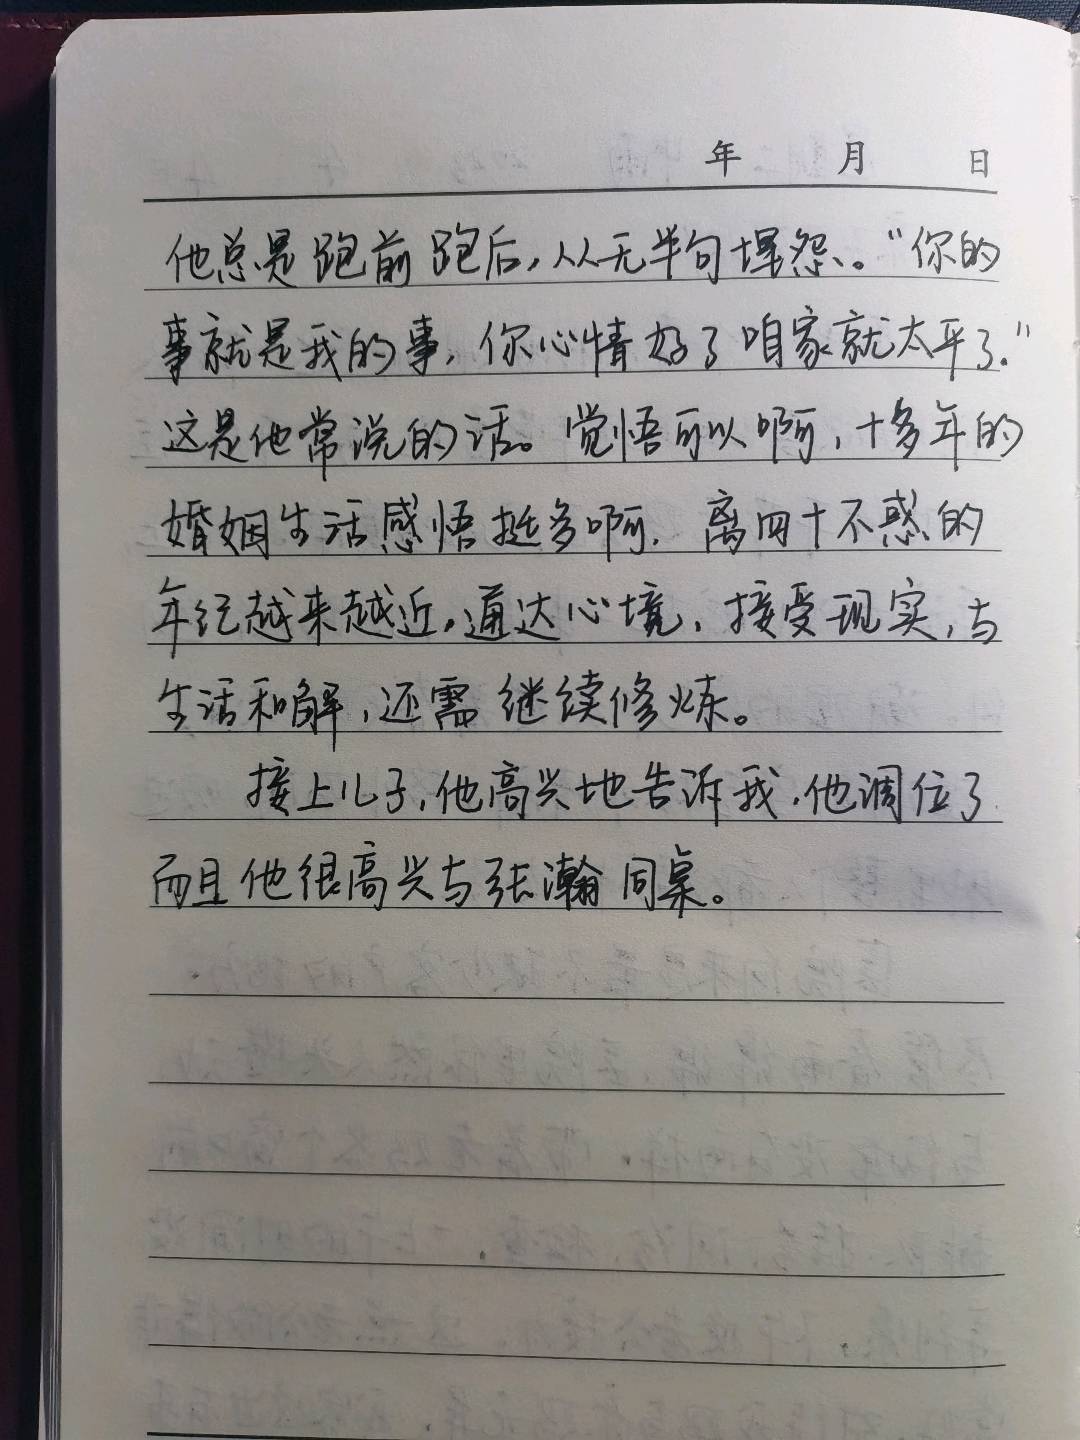 年 月 日
他总是跑前跑后，从无半句埋怨。“你的
事就是我的事，你心情好了咱家就太平了.”
这是他常说的话。觉悟可以啊，十多年的
婚姻生活感悟挺多啊. 离四十不惑的
年纪越来越近。通达心境，接受现实，与
生活和解，还需继续修炼。
接上儿子，他高兴地告诉我，他调位了
而且他很高兴与张瀚同桌。